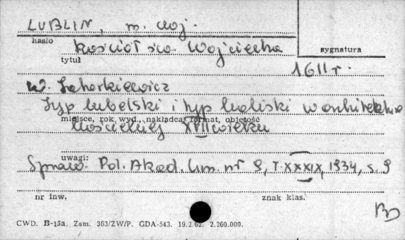 LUBLIN, m. woj.
hasło
kościół św. Wojciecha
sygnatura
tytuł
1611 r.
W. Zahorkiewicz
Typ lubelski i typ kaliski w architekturze
miejsce, rok wyd., nakładca, format, objętość
kościelnej XVII wieku
uwagi:
Spraw. Pol. Akad. Um. nr 9, T. XXXIX, 1934, s. 9
nr inw.
znak klas.
CWD. B-15a. Zam. 363/ZW/P. GDA-543. 19.2.62. 2.260.000.